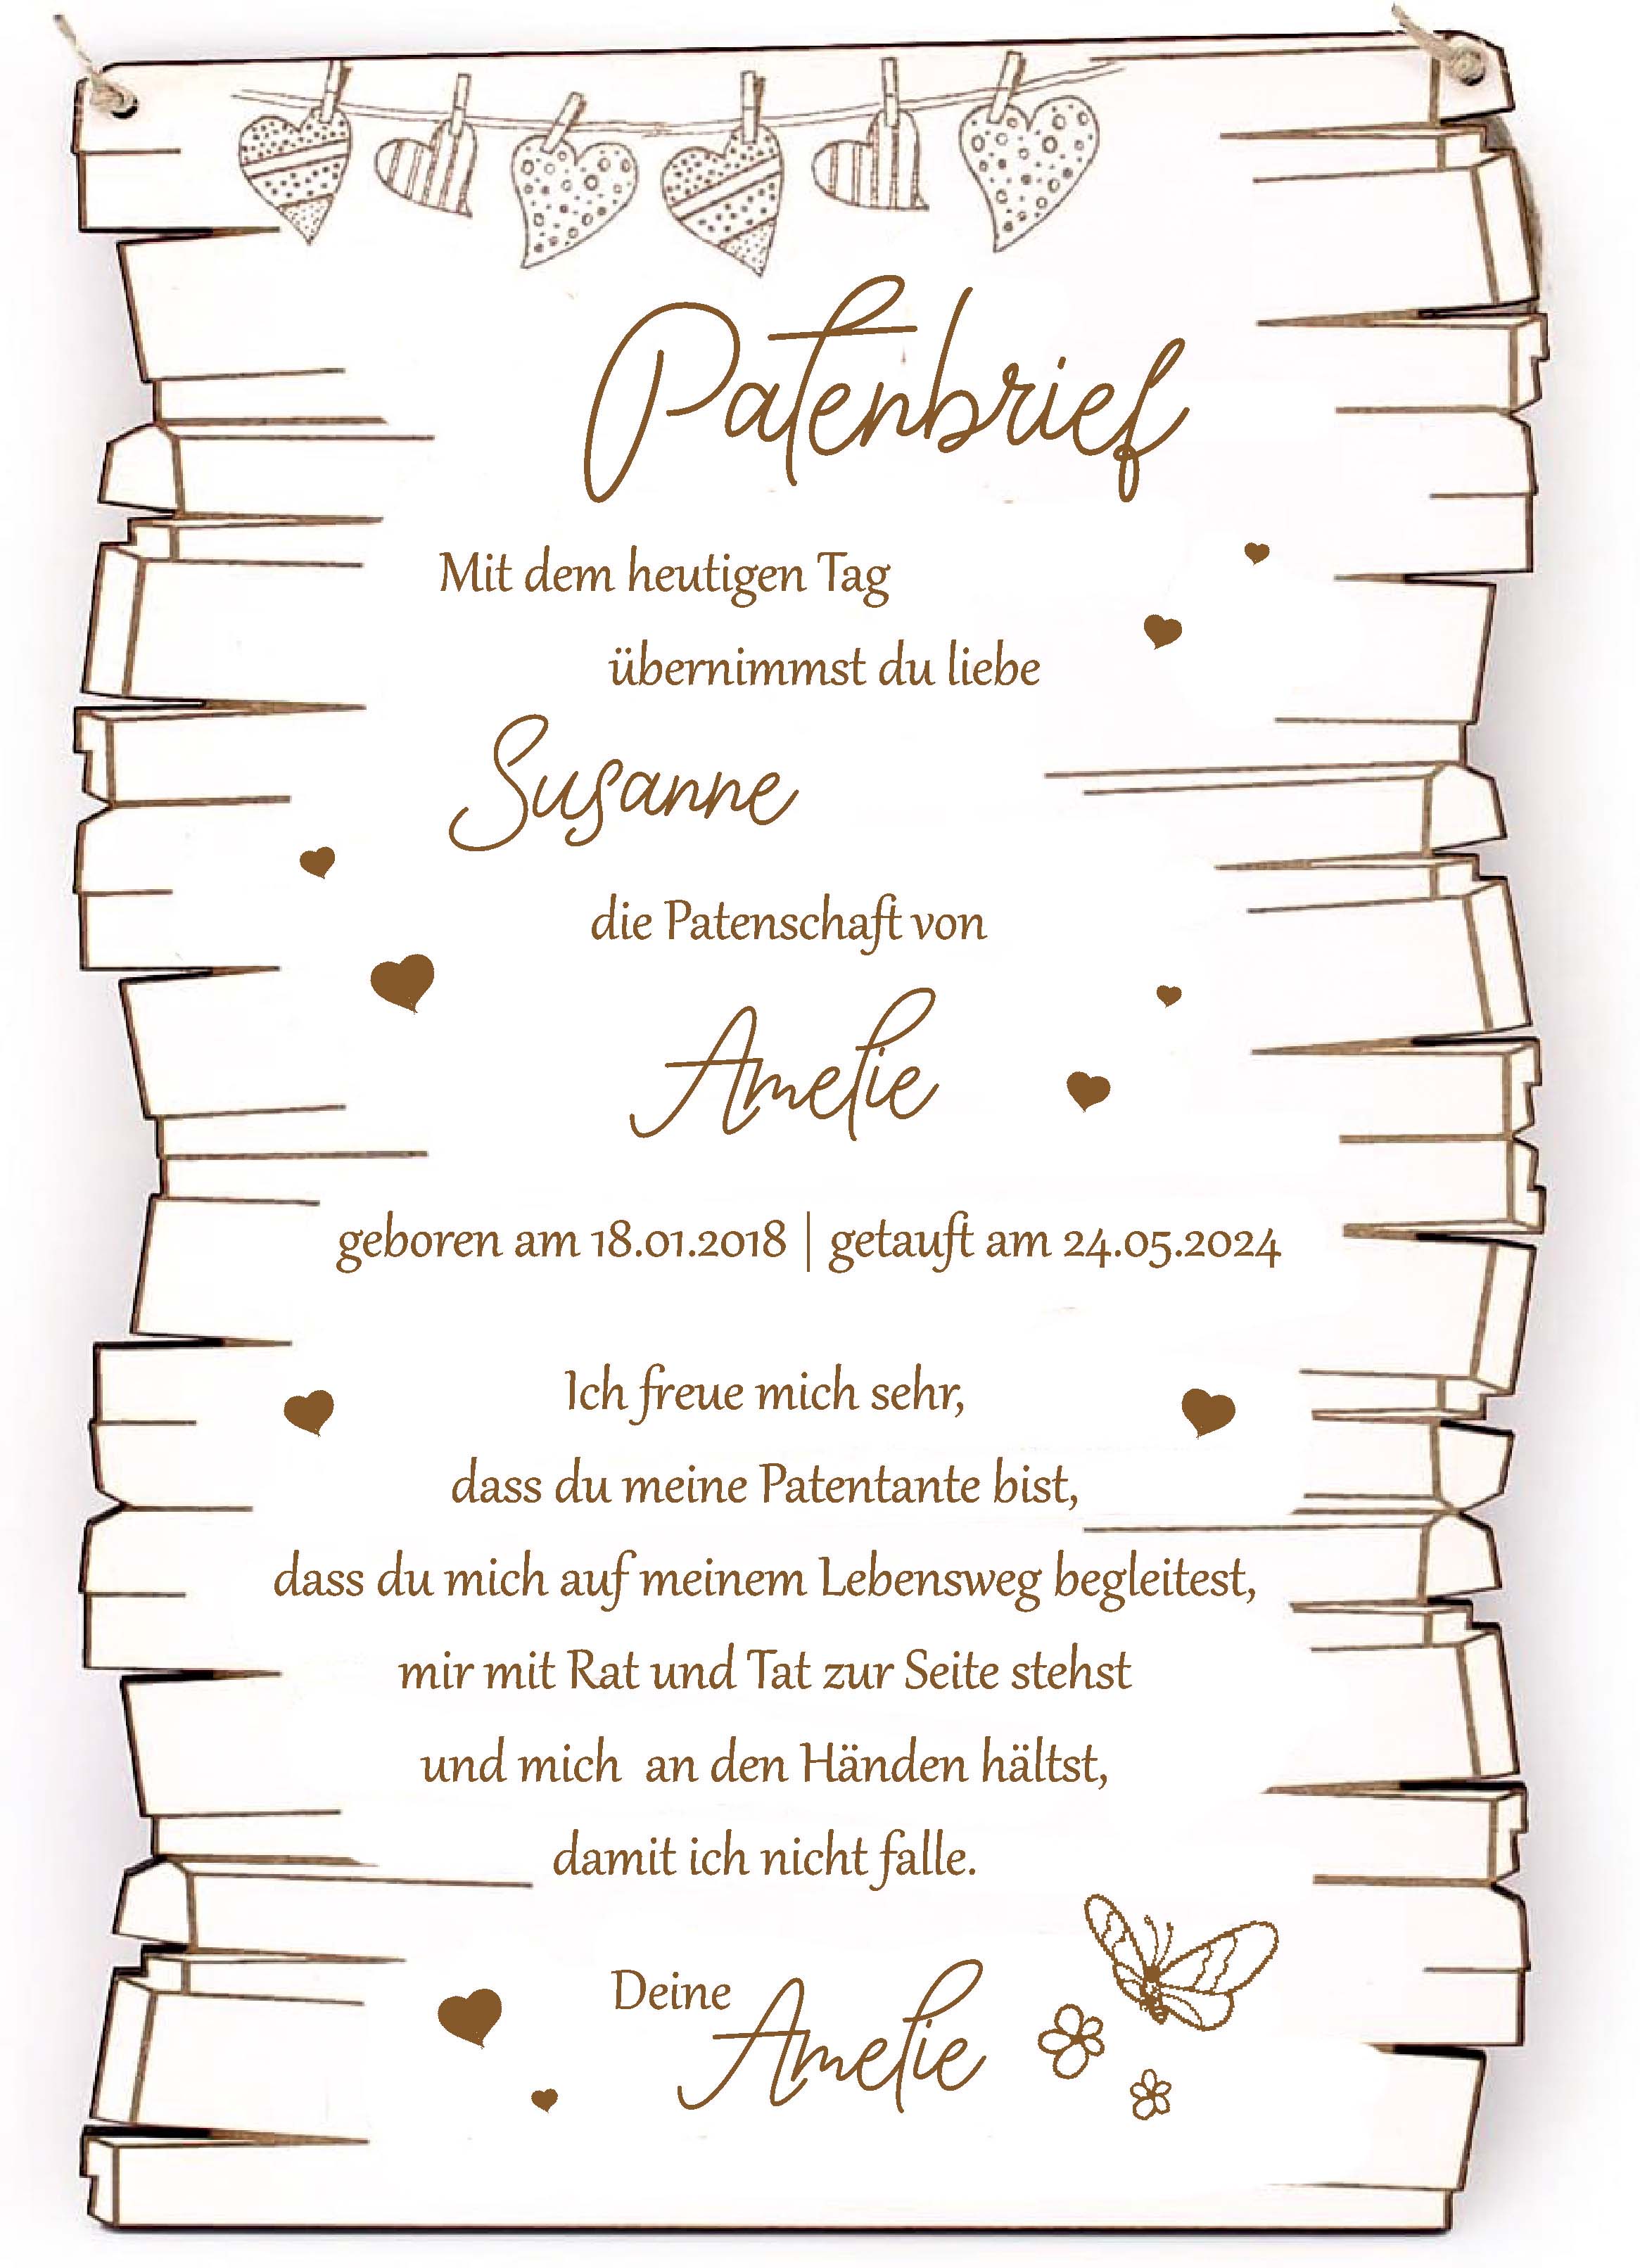 Patenbrief
Mit dem heutigen Tag
übernimmst du liebe
Susanne
die Patenschaft von
Amelie
geboren am 18.01.2018 | getauft am 24.05.2024
Ich freue mich sehr,
dass du meine Patentante bist,
dass du mich auf meinem Lebensweg begleitest,
mir mit Rat und Tat zur Seite stehst
und mich an den Händen hältst,
damit ich nicht falle.
Deine Amelie